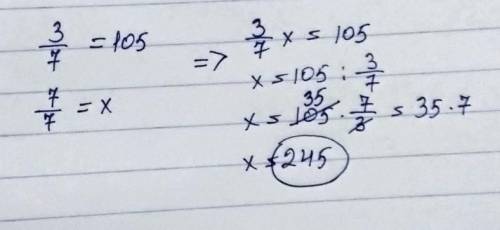 3/7 = 105
7/7 = x
=> 3/7 x = 105
x = 105 : 3/7
x = 105 35 · 7/3 = 35 · 7
x = 245